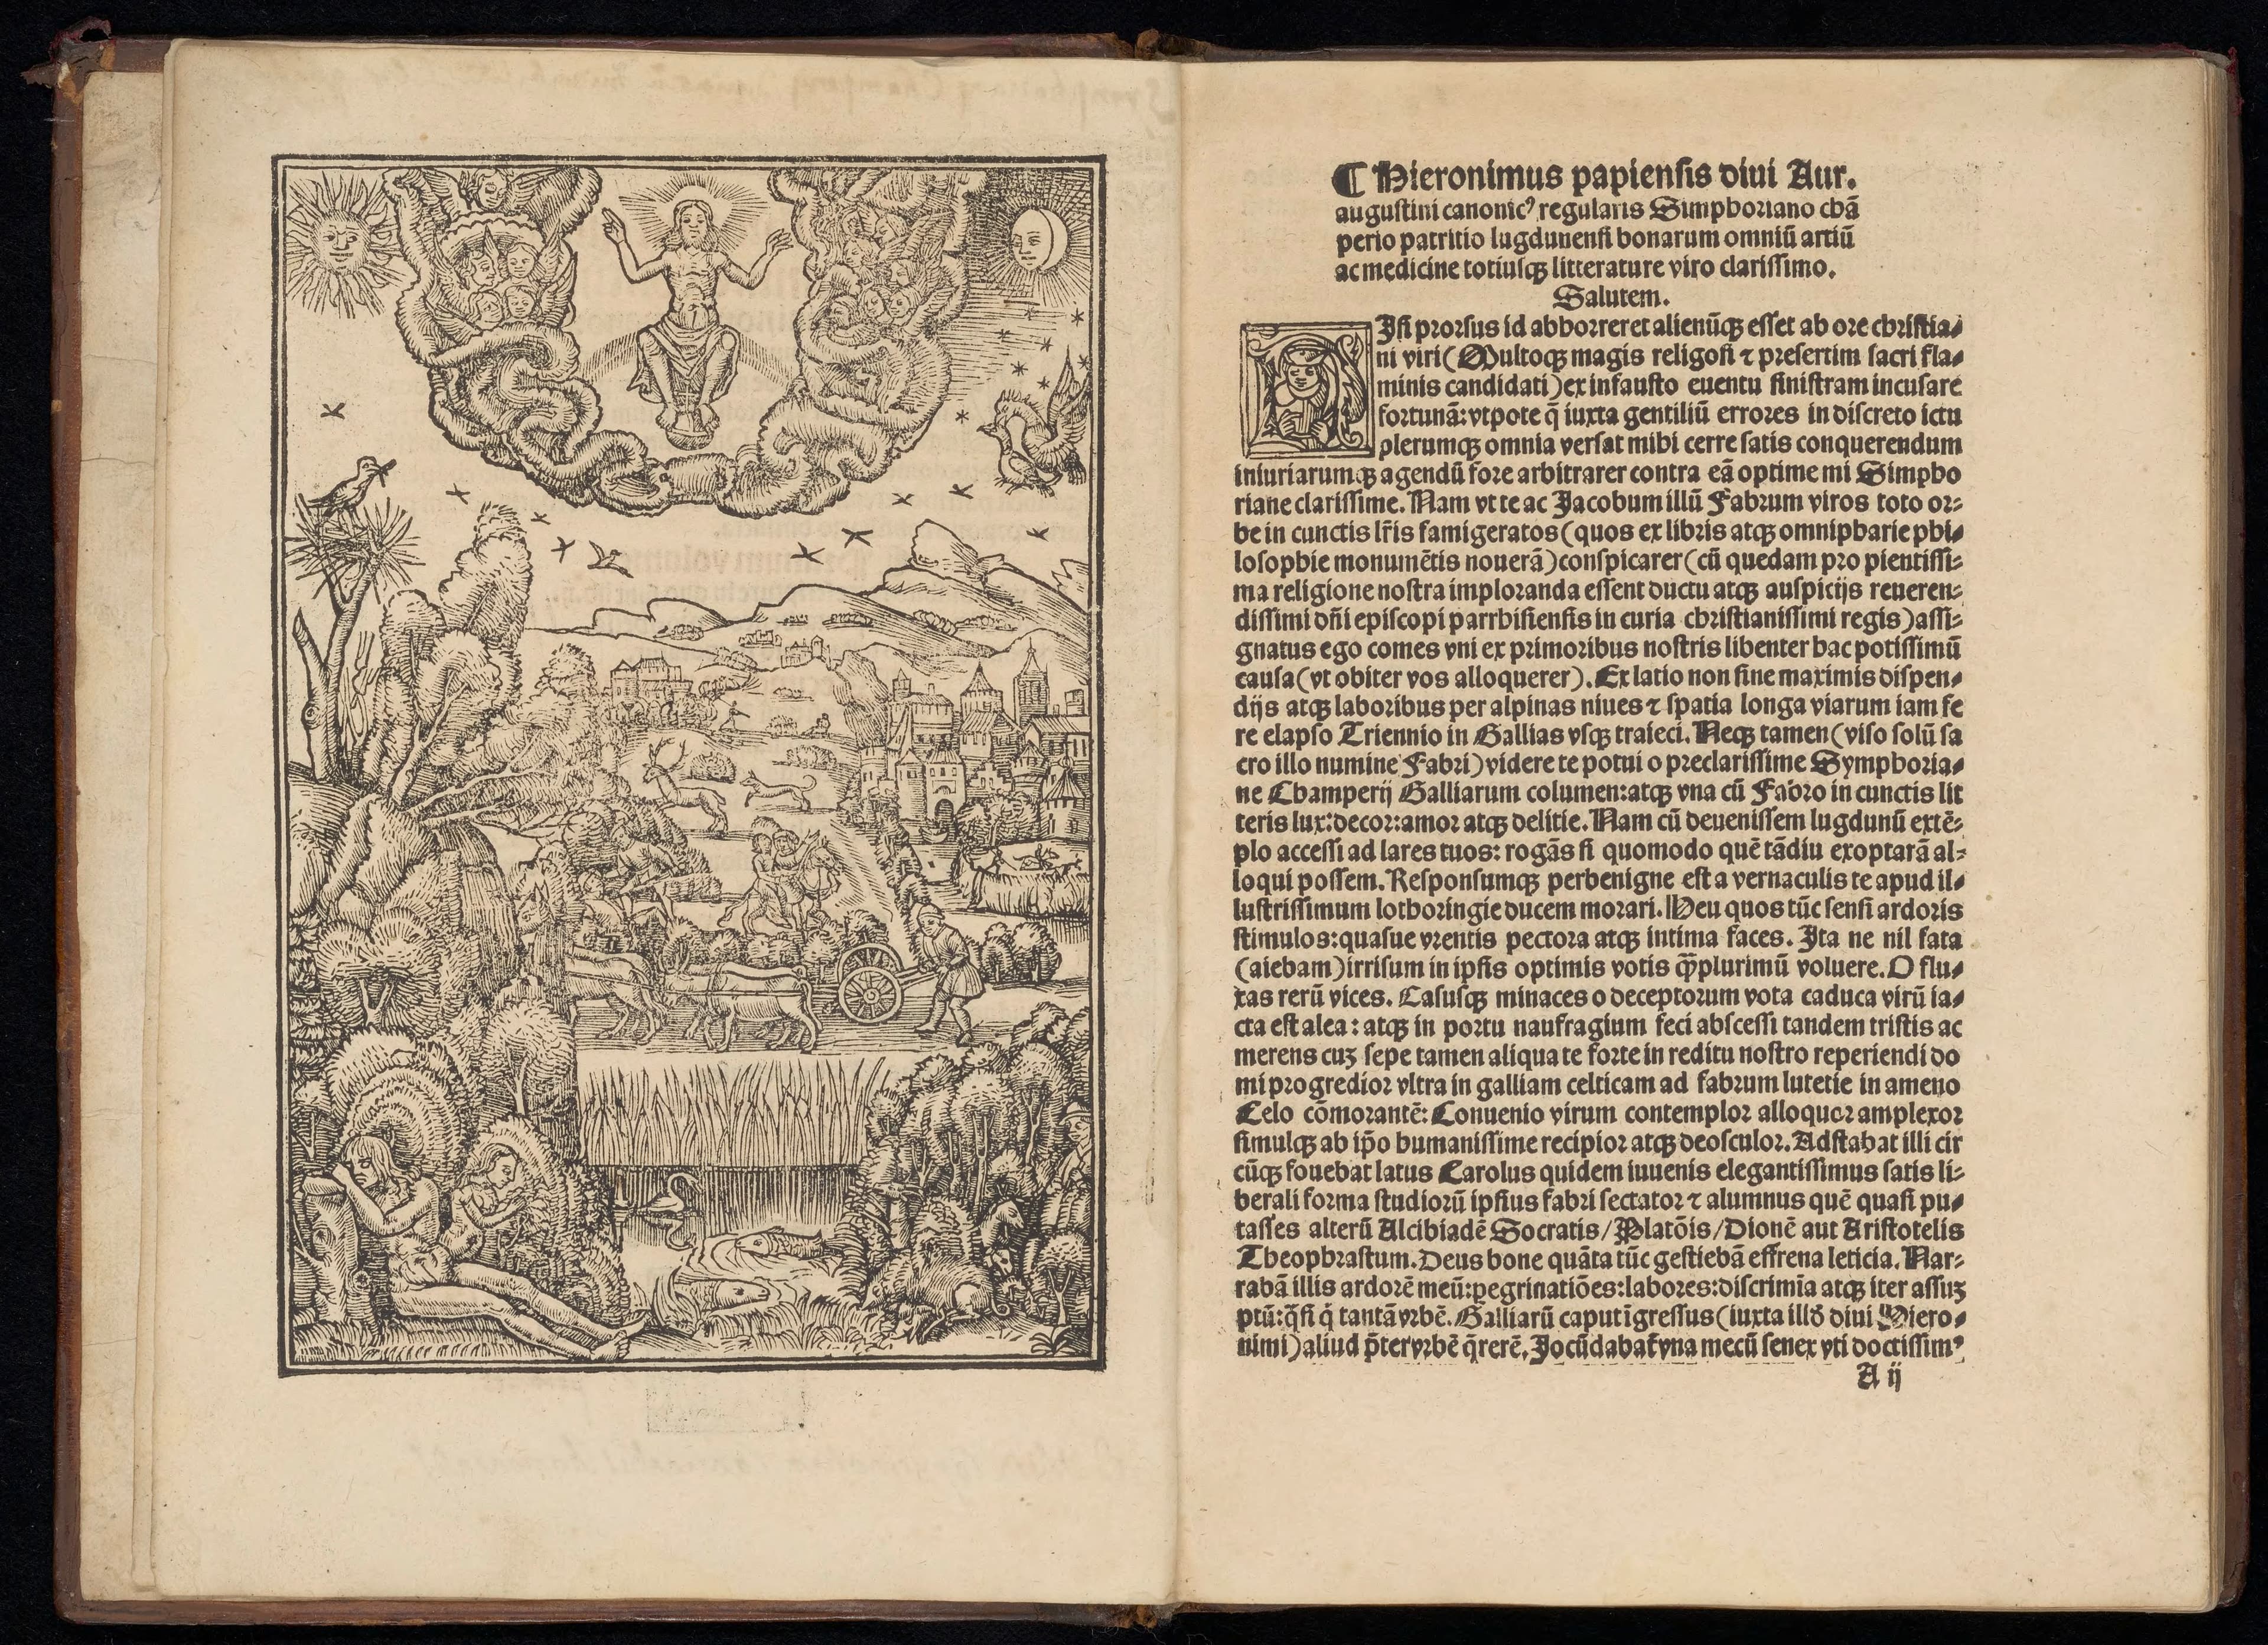 ¶ Hieronimus papiensis diui Aur.
augustini canonicꝰ regularis Simphoriano chã
perio patritio lugdunensi bonarum omniũ artiũ
ac medicine totiusqꝫ litterature viro clarissimo.
Salutem.
Isi prorsus id abhorreret alienũqꝫ esset ab ore christia-
ni viri (Multoqꝫ magis religosi ⁊ presertim sacri fla-
minis candidati) ex infausto euentu sinistram incusare
fortunã: vtpote q̃ iuxta gentiliũ errores in discreto ictu
plerumqꝫ omnia versat mihi cerre satis conquerendum
iniuriarumqꝫ agendũ fore arbitrarer contra eã optime mi Simpho
riane clarissime. Nam vt te ac Jacobum illũ Fabrum viros toto or-
be in cunctis lr̃is famigeratos (quos ex libris atqꝫ omnipharie phi-
losophie monumẽtis nouerã) conspicarer (cũ quedam pro pientissi-
ma religione nostra imploranda essent ductu atqꝫ auspicijs reueren-
dissimi dñi episcopi parrhisiensis in curia christianissimi regis) assi-
gnatus ego comes vni ex primoribus nostris libenter hac potissimũ
causa (vt obiter vos alloquerer). Ex latio non sine maximis dispen-
dijs atqꝫ laboribus per alpinas niues ⁊ spatia longa viarum iam fe
re elapso Triennio in Gallias vsqꝫ traieci. Neqꝫ tamen (viso solũ sa
cro illo numine Fabri) videre te potui o preclarissime Symphoria-
ne Champerij Galliarum columen: atqꝫ vna cũ Fabro in cunctis lit
teris lux: decor: amor atqꝫ delitie. Nam cũ deuenissem lugdunũ extẽ-
plo accessi ad lares tuos: rogãs si quomodo quẽ tãdiu exoptarã al-
loqui possem. Responsumqꝫ perbenigne est a vernaculis te apud il-
lustrissimum lothoringie ducem morari. Heu quos tũc sensi ardoris
stimulos: quasue vrentis pectora atqꝫ intima faces. Ita ne nil fata
(aiebam) irrisum in ipsis optimis votis qꝫ̃plurimũ voluere. O flu-
xas rerũ vices. Casusqꝫ minaces o deceptorum vota caduca virũ ia-
cta est alea: atqꝫ in portu naufragium feci abscessi tandem tristis ac
merens cuꝫ sepe tamen aliqua te forte in reditu nostro reperiendi do
mi progredior vltra in galliam celticam ad fabrum lutetie in ameno
Celo cõmorantẽ: Conuenio virum contemplor alloquor amplexor
simulqꝫ ab ip̃o humanissime recipior atqꝫ deosculor. Adstabat illi cir
cũqꝫ fouebat latus Carolus quidem iuuenis elegantissimus satis li-
berali forma studiorũ ipsius fabri sectator ⁊ alumnus quẽ quasi pu-
tasses alterũ Alcibiadẽ Socratis/Platõis/Dionẽ aut Aristotelis
Theophrastum. Deus bone quãta tũc gestiebã effrena leticia. Nar-
rabã illis ardorẽ meũ: pegrinatiões: labores: discrimĩa atqꝫ iter assuꝫ
ptũ: q̃si q̃ tantã vrbẽ. Galliarũ caput ĩgressus (iuxta illõ diui Hiero-
nimi) aliud p̃ter vrbẽ q̃rerẽ. Jocũdabat̃ vna mecũ senex vti doctissimꝰ
A ij